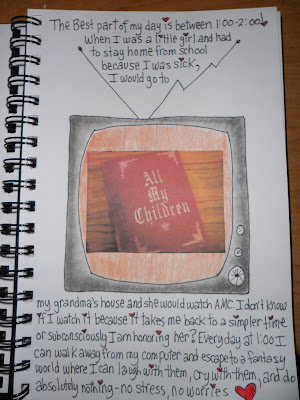 The Best part of my day is between 1:00-2:00!
When I was a little girl and had
to stay home from school
because I was sick,
I would go to
All
My
Children
my grandma's house and she would watch AMC. I don't know
if I watch it because it takes me back to a simpler time
or subconsciously I am honoring her? Everyday at 1:00 I
can walk away from my computer and escape to a fantasy
world where I can laugh with them, cry with them, and do
absolutely nothing-no stress, no worries